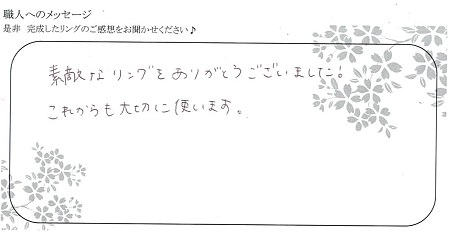 職人へのメッセージ
是非 完成したリングのご感想をお聞かせください♪
素敵なリングをありがとうございました!
これからも大切に使います。